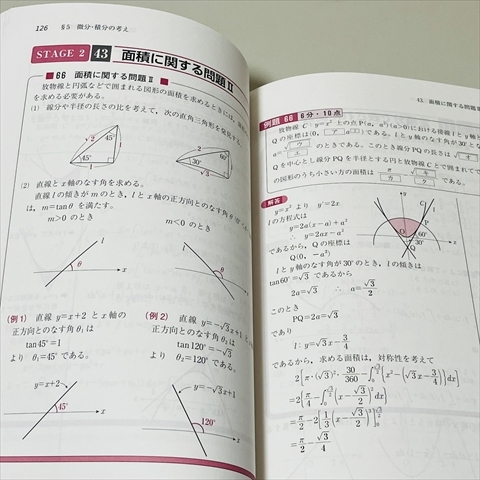 126 §5 微分・積分の考え
STAGE 2 43 面積に関する問題Ⅱ
■66 面積に関する問題Ⅱ■
放物線と円弧などで囲まれる図形の面積を求めるときには,
を求める必要がある.
(1) 線分や半径の長さの比を考えて,次の直角三角形を発見する.
2 45° 1 45°
2 60° 1 30° √3
(2) 直線とx軸のなす角を求める.
直線lの傾きがmのとき,lとx軸の正方向とのなす角
は,m=tanθ を満たす.
m>0 のとき m<0 のとき
l θ x
l θ x
(例1) 直線 y=x+2 と x軸の
正方向とのなす角θ₁は
tan45°=1
より θ₁=45° である.
y=x+2
45° x
(例2) 直線 y=-√3x+1
正方向とのなす角θ₂は
tan120°=-√3
より θ₂=120° である.
y=-√3x+1
120° x
43 面積に関する問題Ⅱ
例題 66 6分・10点
放物線 C:y=x² 上の点P(a, a²)(a>0)における接線lとy軸と
Qの座標は(0, アa イ )である.lとy軸のなす角が30°とな
a=√ウ/エ のときである.このとき線分PQの長さは √オ
Qを中心とし線分PQを半径とする円と放物線Cとで囲まれて
の図形のうち小さい方の面積は π/カ - √キ/ク である.
解答
y=x² より y'=2x.
lの方程式は
y=2a(x-a)+a²
∴ y=2ax-a²
であるから,Qの座標は
Q(0, -a²)
lとy軸のなす角が30°のとき,lの傾きは
tan60°=√3 であるから
2a=√3 ∴ a=√3/2
このとき
PQ=2a=√3
であり
l:y=√3x-3/4
であるから,求める面積は,対称性を考えて
2{π・(√3)²・30/360-∫₀^(√3/2){x²-(√3x-3/4)}dx}
=2{π/4-∫₀^(√3/2)(x-√3/2)²dx}
=π/2-2[1/3(x-√3/2)³]₀^(√3/2)
=π/2-√3/4